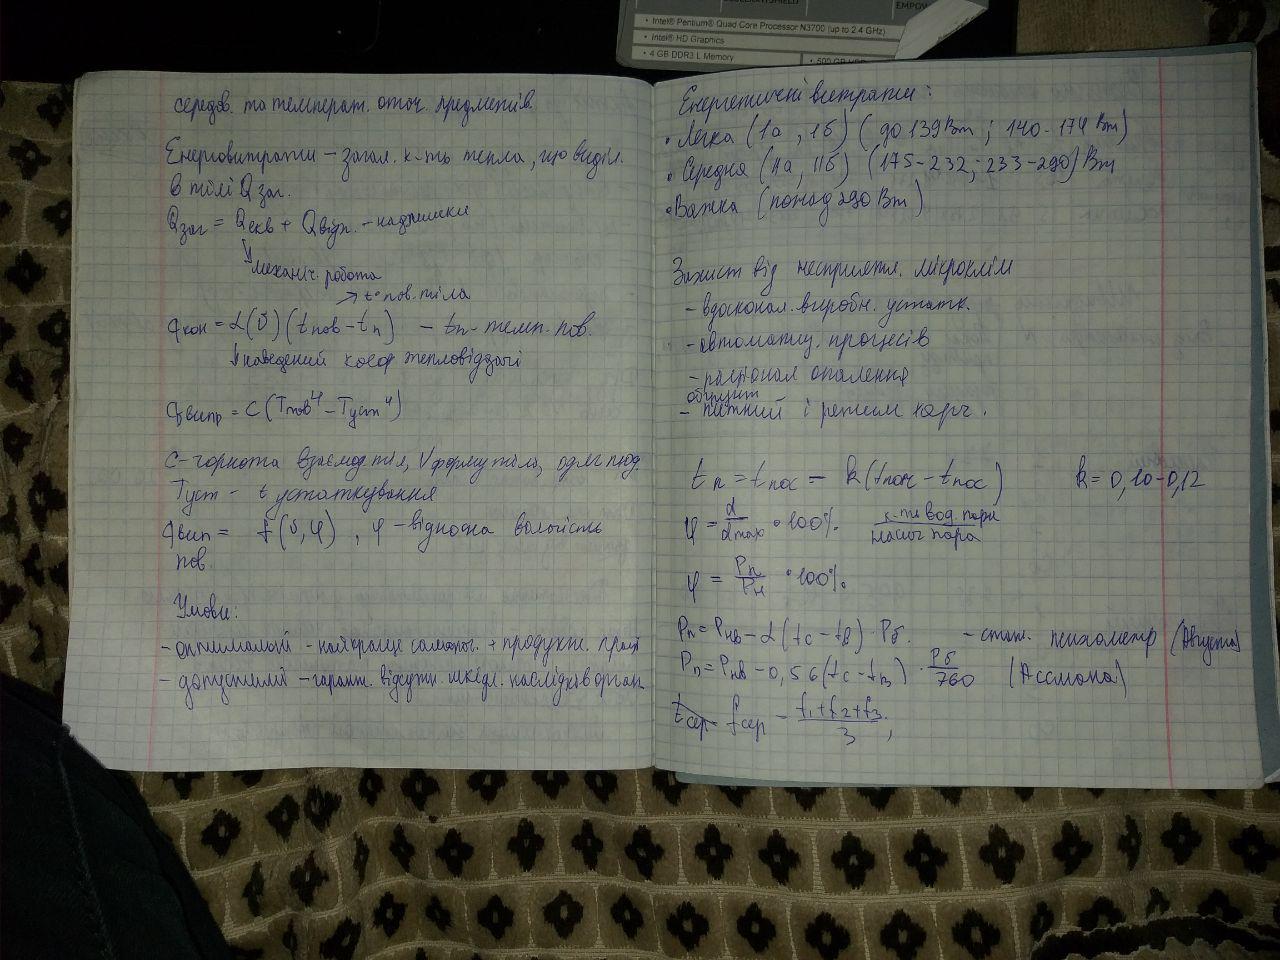 EMPOW
• Intel® Pentium® Quad Core Processor N3700 (up to 2.4 GHz)
• Intel® HD Graphics
• 4 GB DDR3 L Memory
• 500 GB HDD
середов. та температ. оточ. предметів.
Енерговитрати – загал. к-ть тепла, що виділ.
в тілі Qзаг.
Qзаг = Qекв + Qвідп. – надлишки
механіч. робота
→ t° пов. тіла
qкон = α(σ)(tпов – tп) – tп – темп. пов.
наведений коеф тепловіддачі
qвипр = C(Tпов⁴ – Tуст⁴)
C – чорнота взаємод тіл, форму тіла, одяг люд.
Tуст – t устаткування
qвип = f(σ, φ), φ – відносна вологість
пов.
Умови:
– оптимальні – найкраще самопоч. + продукт. праці
– допустимі – гарант. відсутн. шкідл. наслідків орган.
Енергетичні витрати:
• Легка (Iа, Iб) (до 139 Вт; 140-174 Вт)
• Середня (IIа, IIб) (175-232; 233-290) Вт
• Важка (понад 290 Вт)
Захист від несприятл. мікроклім
– вдосконал. виробн. устатк.
– автоматиз. процесів
– раціонал опалення
– питний і режим харч.
tп = tпос – k(tпоч – tпос) k = 0,10-0,12
φ = d/dmax • 100% к-ть вод. пари/насич пара
φ = Pп/Pн • 100%
Pп = Pнв – α(tс – tв) • Pб. – стат. психометр (Августа)
Pп = Pнв – 0,56(tс – tв) • Pб/760 (Ассмана)
tсер fсер = f1+f2+f3/3;